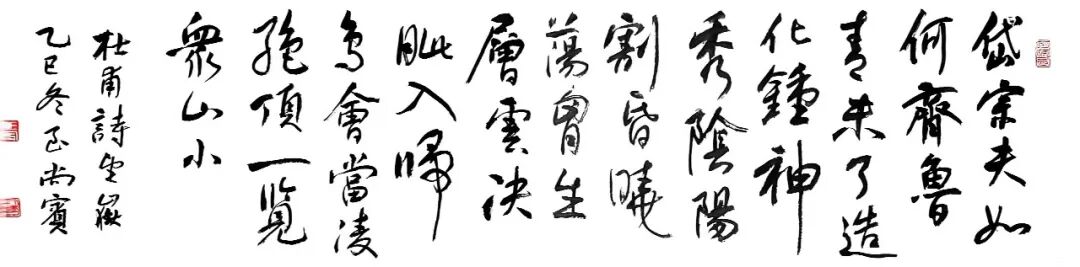 岱宗夫如
何齊魯
青未了造
化鍾神
秀陰陽
割昏曉
蕩胷生
層雲决
眦入歸
鳥會當凌
絶頂一覽
衆山小
杜甫詩望嶽
乙巳冬尚賓